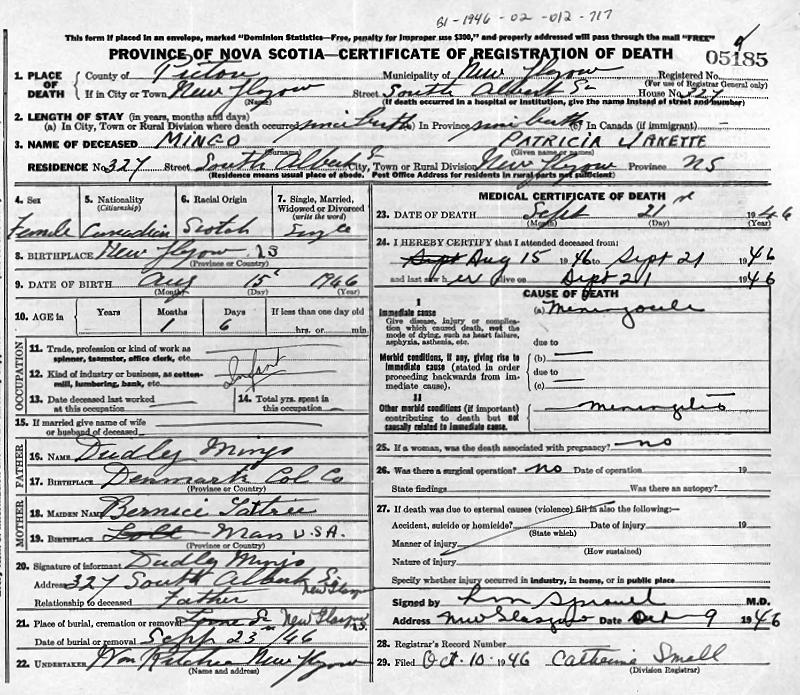 B1-1946-02-012-717
This form if placed in an envelope, marked "Dominion Statistics—Free, penalty for improper use $300," and properly addressed will pass through the mail "FREE"
PROVINCE OF NOVA SCOTIA—CERTIFICATE OF REGISTRATION OF DEATH
05185
1. PLACE OF DEATH
County of Pictou Municipality of New Glasgow Registered No.
(For use of Registrar General only)
If in City or Town New Glasgow Street South Albert St House No. 327
(Name) (If death occurred in a hospital or institution, give the name instead of street and number)
2. LENGTH OF STAY (in years, months and days)
(a) In City, Town or Rural Division where death occurred since birth (b) In Province since birth (c) In Canada (if immigrant) —
3. NAME OF DECEASED MINGO PATRICIA
(Surname) (Given name or names)
RESIDENCE No 327 Street South Albert St City, Town or Rural Division New Glasgow Province NS
(Residence means usual place of abode. Post Office Address for residents in rural parts not sufficient)
4. Sex
Female
5. Nationality (Citizenship)
Canadian
6. Racial Origin
Scotch
7. Single, Married, Widowed or Divorced (write the word)
Single
8. BIRTHPLACE New Glasgow NS
(Province or Country)
9. DATE OF BIRTH Aug 15 1946
(Month) (Day) (Year)
10. AGE in Years Months Days If less than one day old
1 6 hrs. or min.
OCCUPATION
11. Trade, profession or kind of work as spinner, teamster, office clerk, etc.
12. Kind of industry or business, as cotton-mill, lumbering, bank, etc.
Infant
13. Date deceased last worked at this occupation
14. Total yrs. spent in this occupation
15. If married give name of wife or husband of deceased
FATHER
16. NAME Dudley Mingo
17. BIRTHPLACE Denmark Col Co
(Province or Country)
MOTHER
18. MAIDEN NAME Bernice Tattrie
19. BIRTHPLACE Mass U.S.A.
(Province or Country)
20. Signature of informant Dudley Mingo
Address 327 South Albert St New Glasgow
Relationship to deceased Father
21. Place of burial, cremation or removal New Glasgow NS
Date of burial or removal Sept 23rd/46
22. UNDERTAKER Wm Ritchie New Glasgow
(Name and address)
MEDICAL CERTIFICATE OF DEATH
23. DATE OF DEATH Sept 21 1946
(Month) (Day) (Year)
24. I HEREBY CERTIFY that I attended deceased from:
Sept Aug 15 1946 to Sept 21 1946
and last saw her alive on Sept 21 1946
CAUSE OF DEATH
I
Immediate cause
Give disease, injury or complication which caused death, not the mode of dying, such as heart failure, asphyxia, asthenia, etc.
(a) Meningocele
due to
Morbid conditions, if any, giving rise to immediate cause (stated in order proceeding backwards from immediate cause).
(b) —
due to
(c) —
II
Other morbid conditions (if important) contributing to death but not causally related to immediate cause.
Meningitis
25. If a woman, was the death associated with pregnancy? no
26. Was there a surgical operation? no Date of operation 19
State findings Was there an autopsy?
27. If death was due to external causes (violence) fill in also the following:—
Accident, suicide or homicide? Date of injury 19
(State which)
Manner of injury
(How sustained)
Nature of injury
Specify whether injury occurred in industry, in home, or in public place
Signed by M.D.
Address New Glasgow Date Oct 9 1946
28. Registrar's Record Number
29. Filed Oct. 10 1946 Catherine Small
(Division Registrar)